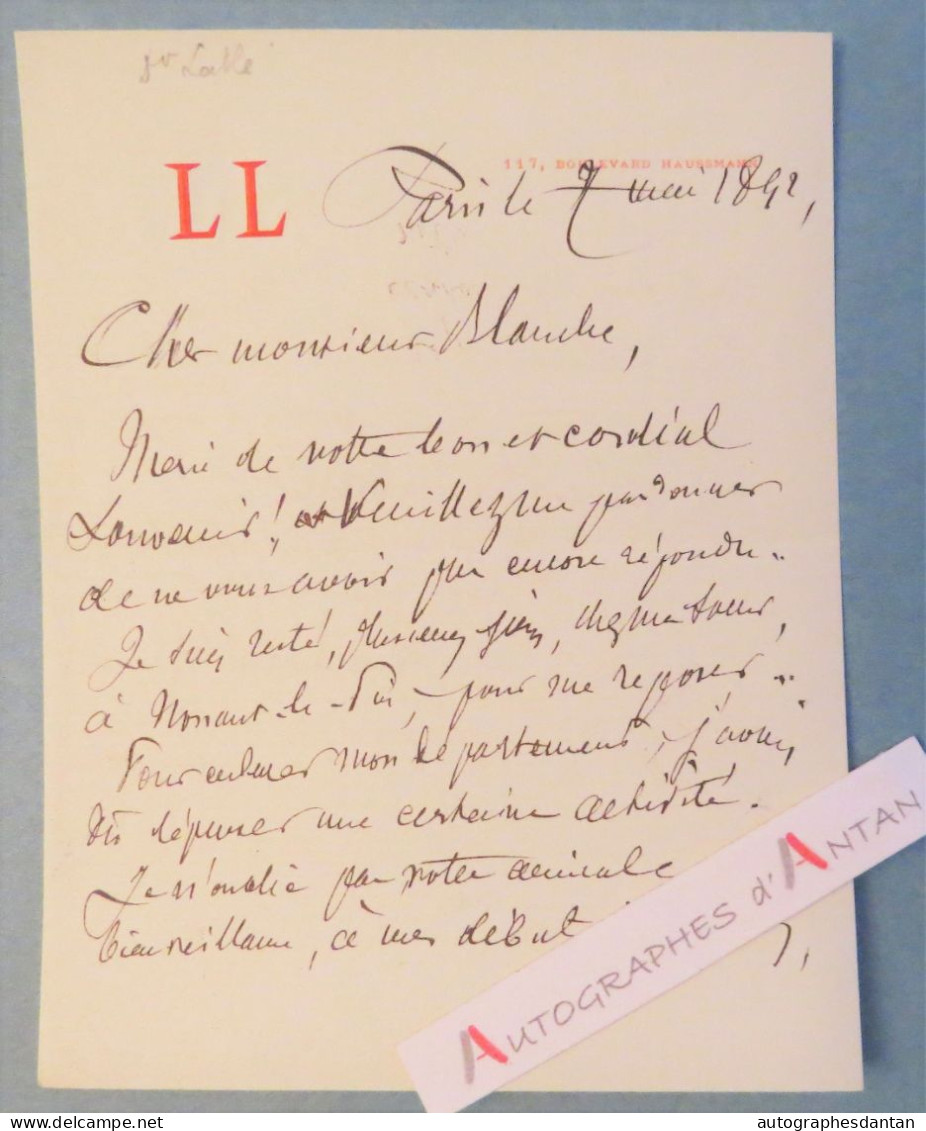 Dr Labbé
LL
117, BOULEVARD HAUSSMANN
Paris le 7 mai 1892,
Cher monsieur Blanche,
Merci de votre bon et cordial
souvenir! Veuillez me pardonner
de ne vous avoir pas encore répondu..
Je suis resté, plusieurs jours, chez ma soeur,
à Nonant-le-Pin, pour me reposer..
Pour enlever mon département, j'avais
dû dépenser une certaine activité.
Je n'oublie pas votre amicale
bienveillance, à mes débuts
AUTOGRAPHES d'ANTAN
autographesdantan